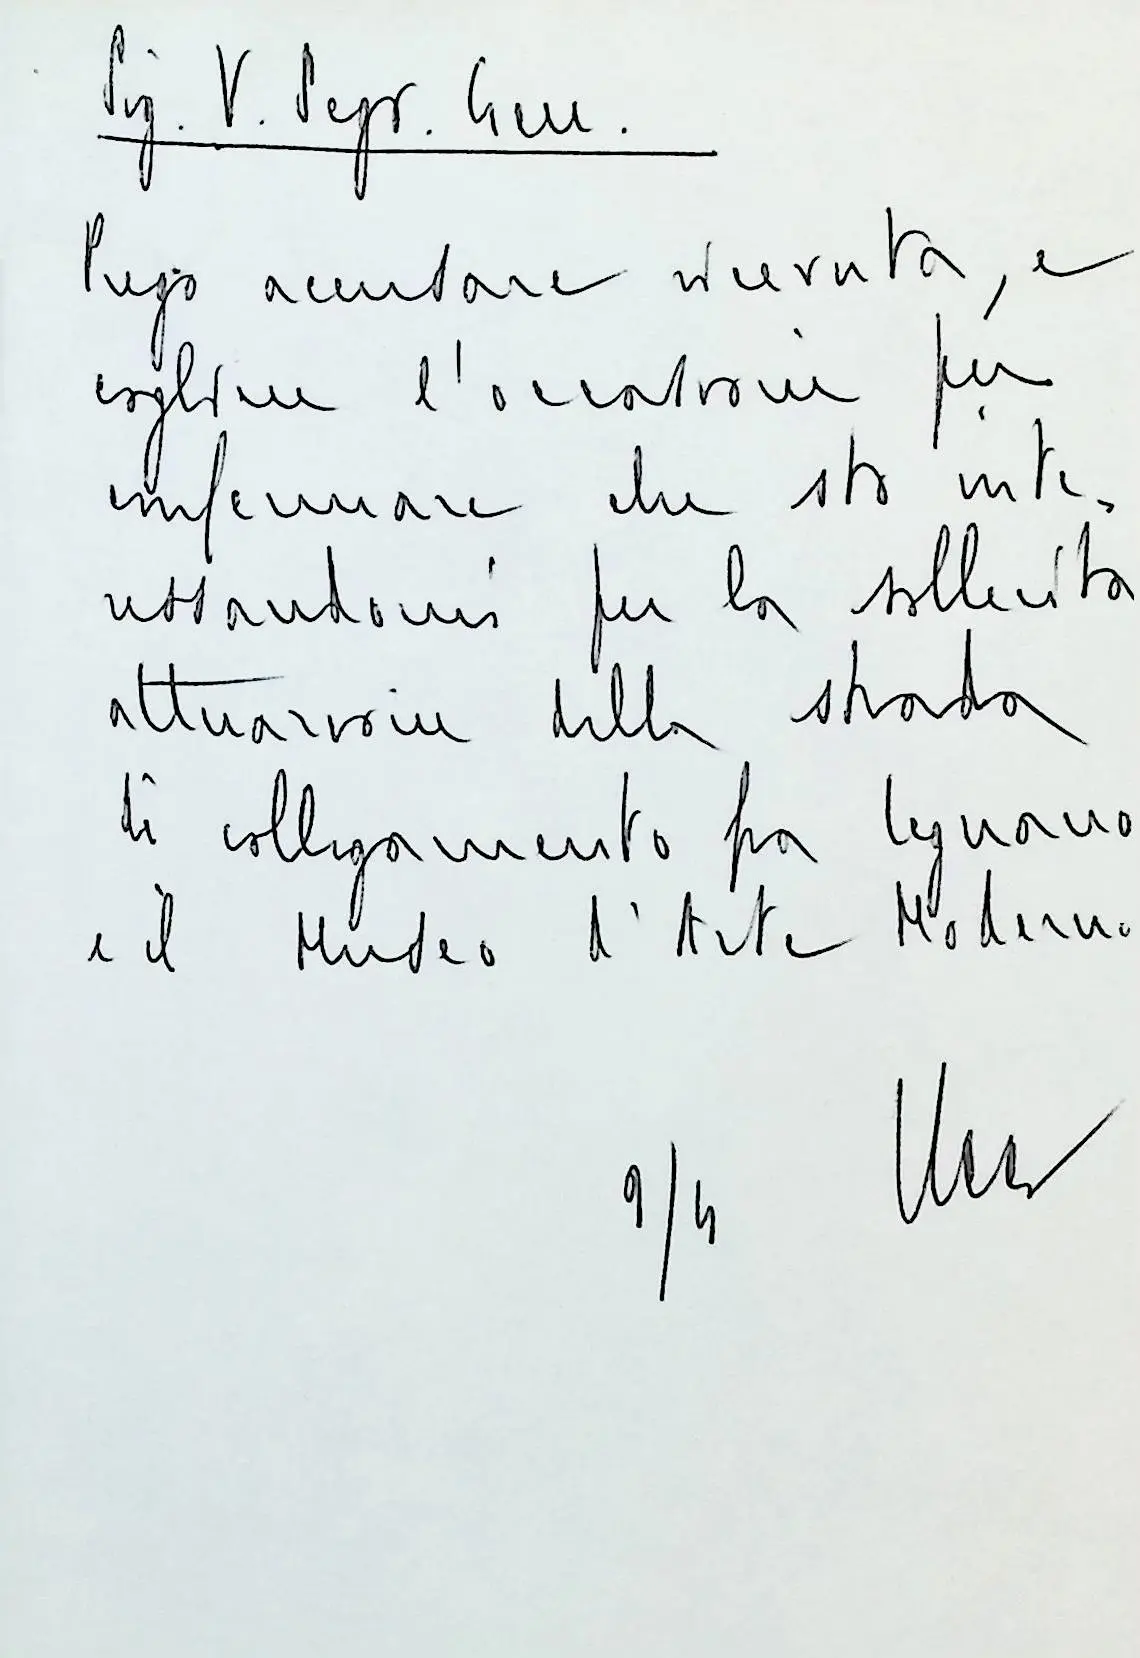 Sig. V. Segr. Gen.
Prego accusare ricevuta, e
cogliere l'occasione per
confermare che sto inte-
ressandomi per la sollecita
attuazione della strada
di collegamento fra Legnano
e il Museo d'Arte Moderna
9/4